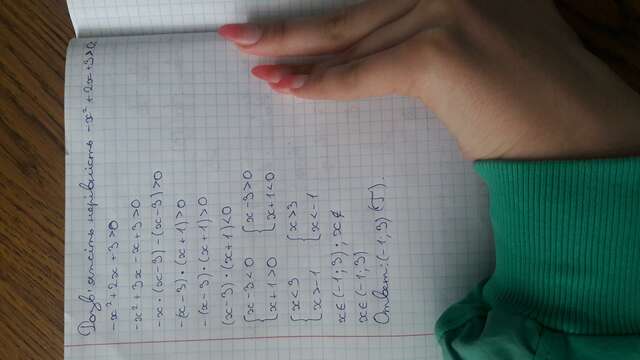 Розв'яжіть нерівність -x² + 2x + 3 > 0.
-x² + 2x + 3 > 0
-x² + 3x - x + 3 > 0
-x · (x-3) - (x-3) > 0
-(x-3) · (x+1) > 0
-(x-3) · (x+1) > 0
(x-3) · (x+1) < 0
{x-3<0 {x-3>0
{x+1>0 {x+1<0
{x<3 {x>3
{x>-1 {x<-1
x∈(-1; 3); x∉
x∈(-1; 3)
Ответ: (-1; 3) (Г).